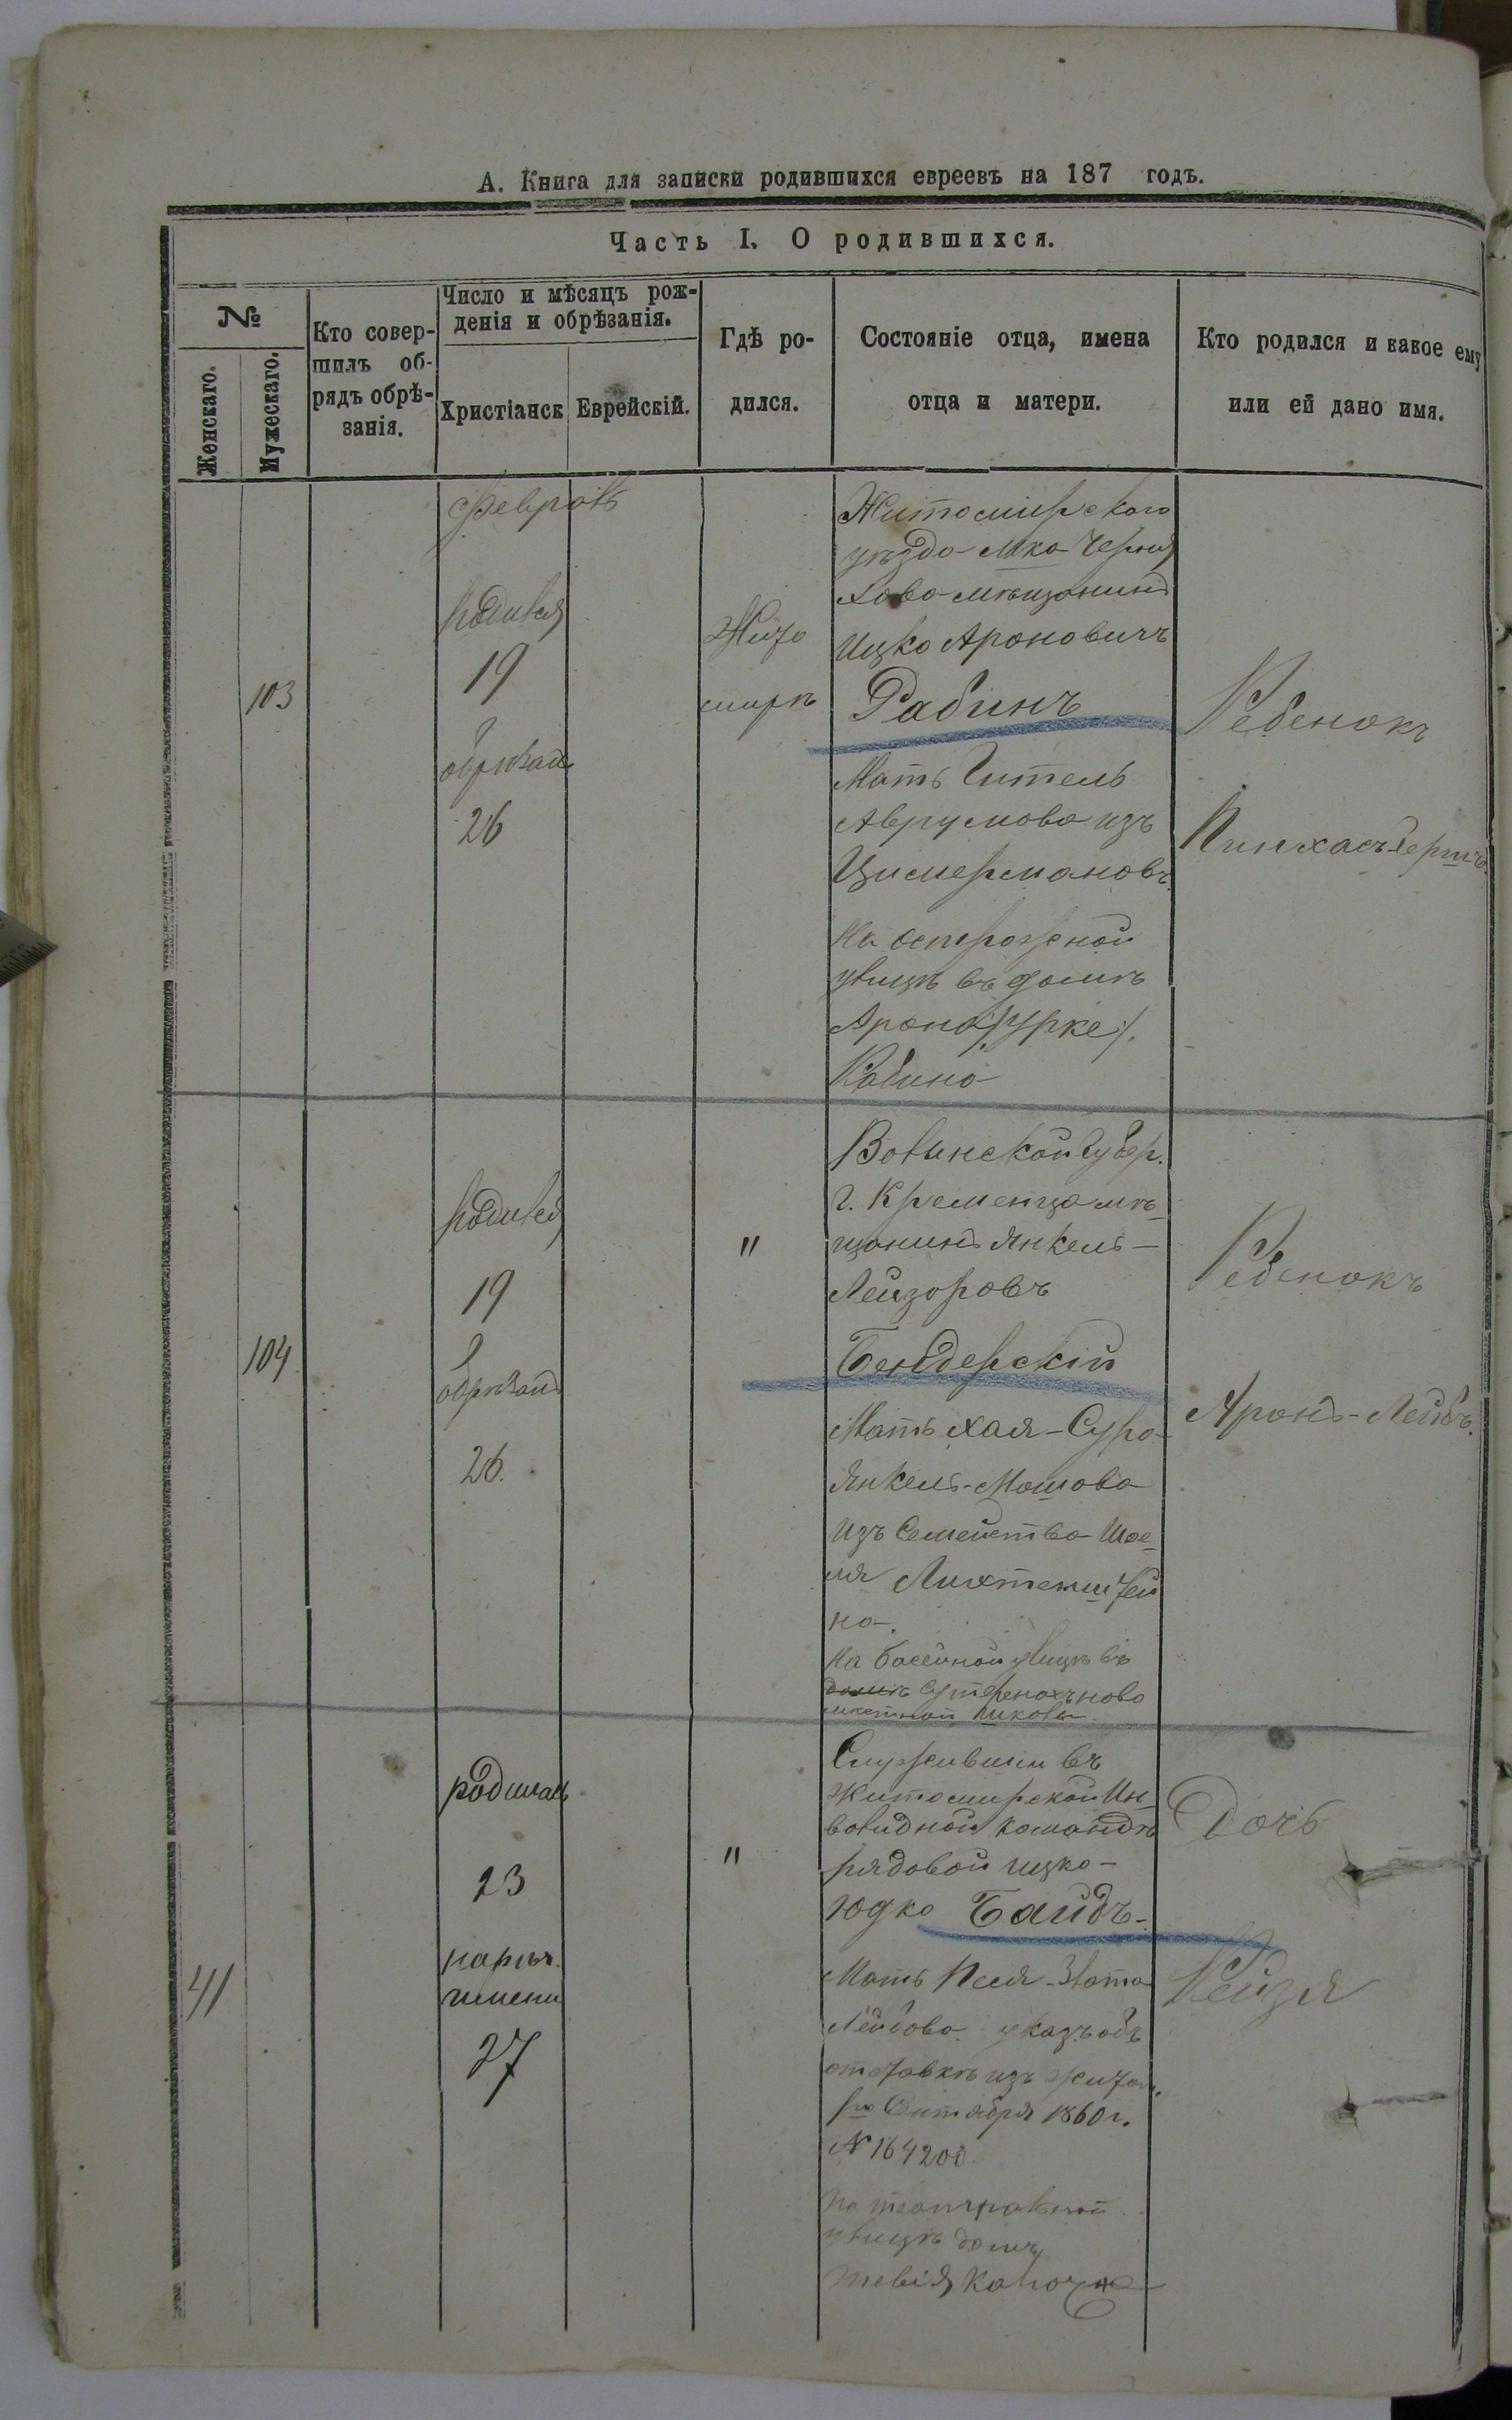 А. Книга для записки родившихся евреевъ на 187 годъ.
Часть I. О родившихся.
№
Женскаго.
Мужескаго.
Кто совер-
шилъ об-
рядъ обрѣ-
занія.
Число и мѣсяцъ рож-
денія и обрѣзанія.
Христіанск
Еврейскій.
Гдѣ ро-
дился.
Состояніе отца, имена
отца и матери.
Кто родился и какое ему
или ей дано имя.
103
родився
19
обрѣзанъ
26
Жито
миръ
Житомирского
уѣзда мка Черня
хова мѣщанинъ
Ицко Ароновичъ
Рабинъ
Мать Гитель
Аврумова изъ
Цимермановъ.
На острожной
улицѣ въ домѣ
Арона
Рабина
Ребенокъ
Пинхасъ-Гершъ.
104
родився
19
обрѣзанъ
26.
"
Волинской губер.
г. Кременца мѣ-
щанинъ Янкель-
Лейзоровъ
Бендерскій
Мать Хая-Сура
Янкель-Мошова
изъ Семейства Шое-
ля Лихтенштей
на.
на басейной улицѣ въ
домѣ
Ребенокъ
Аронъ-Лейбъ.
41
родилась
23
нареч.
имени
27
"
Служившій въ
житомирской Ин-
волидной командѣ
рядовой Ицко-
Юдко Байдъ-
Мать Песя-Злота
Лейбова. указъ объ
отставкѣ изъ Житом.
Сентября 1860 г.
№ 164200.
улицѣ домъ
Тевія
Дочь
Рейзя